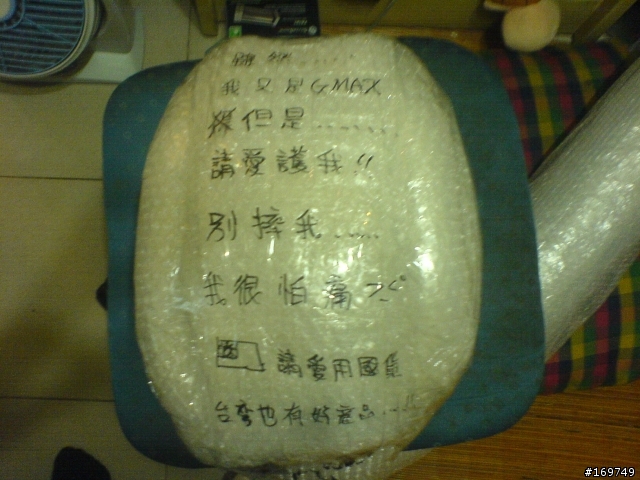 我又是GMAX
但是......
請愛護我!!
別摔我......
我很怕痛><"
請愛用國貨
台灣也有好商品...!!
#169749